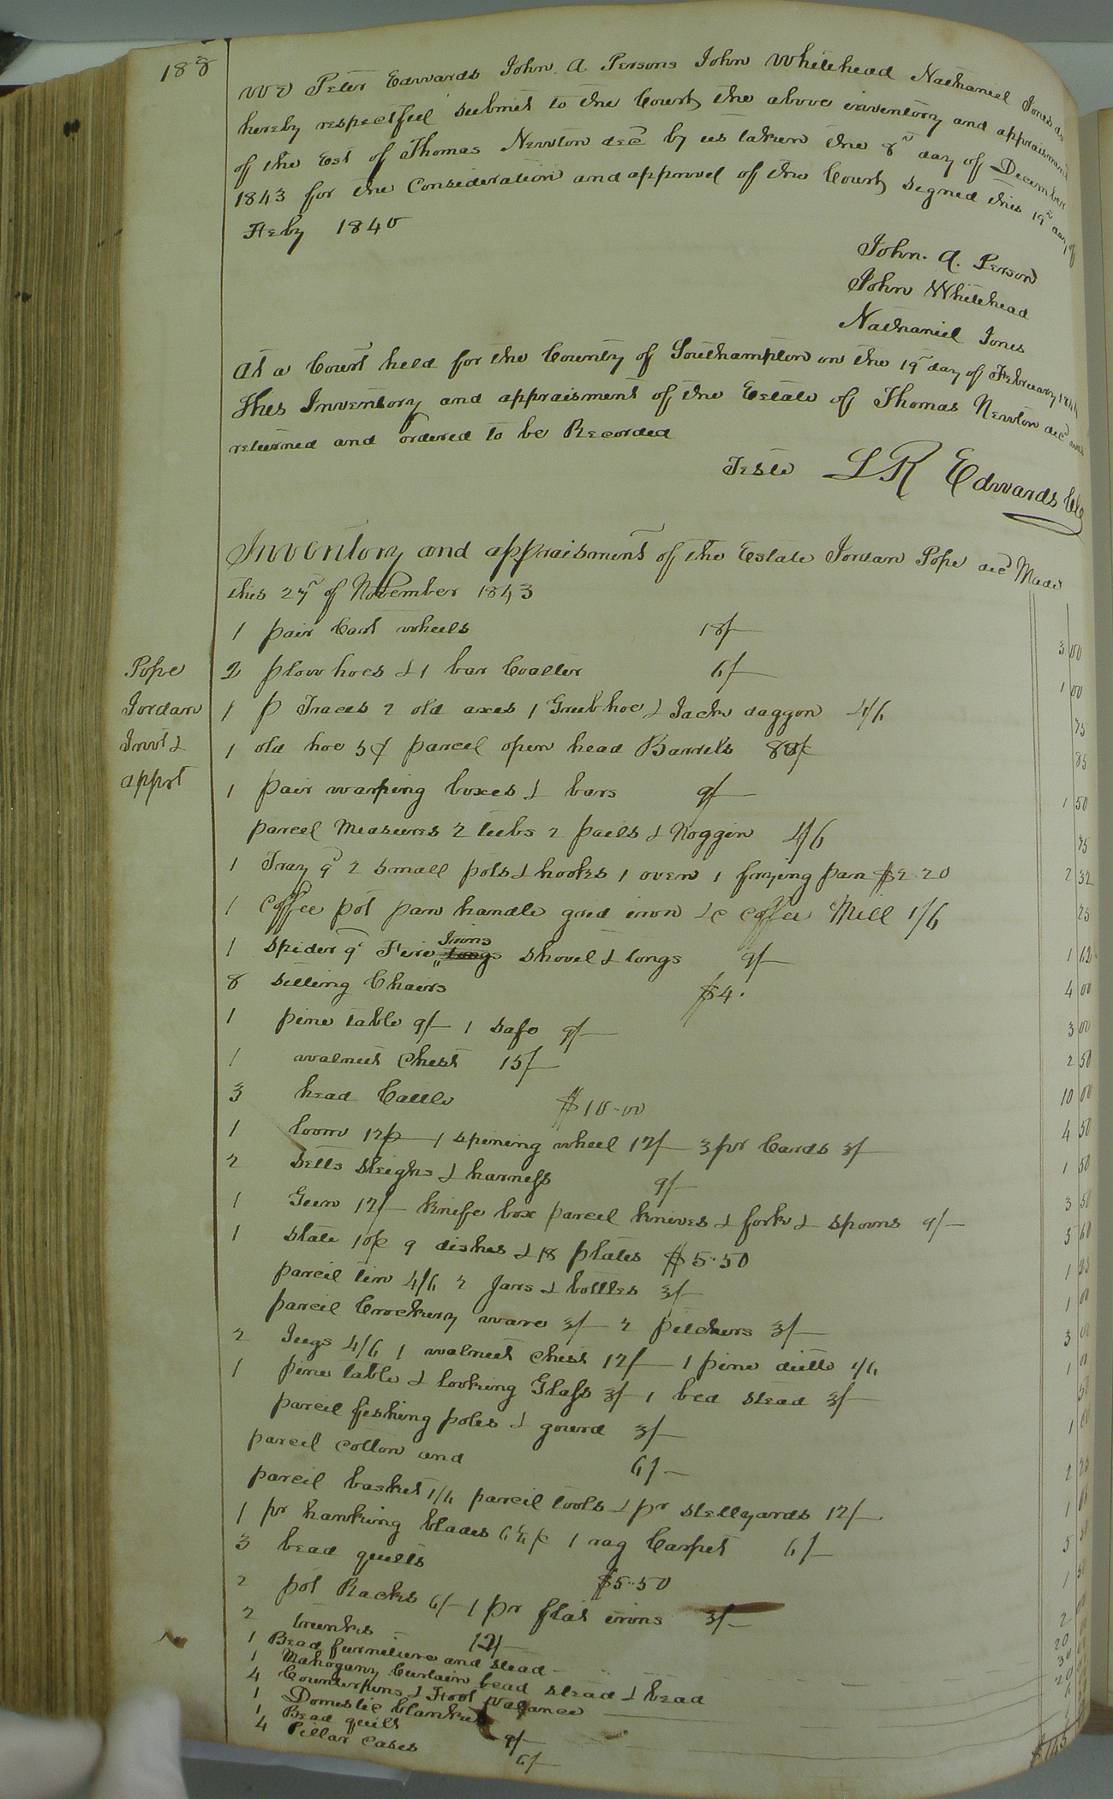 188
We Peter Edwards John A Persons John Whitehead Nathaniel Jones do
hereby respectful submit to the Court the above inventory and appraisment
of the Est of Thomas Newton decd by us taken the 8th day of December
1843 for the Consideration and approvel of the Court signed this 19th day of
Feby 184
John. A. Person
John Whitehead
Nathaniel Jones
At a Court held for the County of Southampton on the 19th day of February
This Inventory and appraisment of the Estate of Thomas Newton decd was
returned and ordered to be Recorded
Teste L R Edwards Clk
Inventory and appraisment of the Estate Jordan Pope decd Made
this 27th of November 1843
1 pair Cart wheels 18/— 3 00
Pope
Jordan
Invt &
apprt
2 plow hoes & 1 bar Coalter 6/— 1 00
1 p Traces 2 old axes 1 Grubhoe & Jack daggon 4/6 75
1 old hoe 5¢ parcel open head Barrels 80¢ 85
1 pair warping boxes & bars 9/— 1 50
parcel Measures 2 tubs 2 pails & Noggin 4/6 75
1 Tray 9d 2 small pots & hooks 1 oven 1 frying pan $2.20 2 32
1 Coffee pot pan handle grid iron &c Coffee Mill 1/6 25
1 spider 9d Fire Irons shovel & tongs 9/— 1 62
8 setting Chairs $4. 4 00
1 pine table 9/— 1 safe 9/— 3 00
1 walnut Chest 15/— 2 50
3 head Cattle $10.00 10 00
1 loom 12/— 1 spining wheel 12/— 3 pr Cards 3/— 4 50
2 setts sleighs & harness 9/— 1 50
1 Gun 12/— knife box parcel knives & fork & spoons 9/— 3 50
1 slate 10¢ 9 dishes & 18 plates $5.50 5 60
parcil tin 4/6 2 Jars & bottles 3/— 1 25
parcil Crockury ware 3/— 2 pitchers 3/— 1 00
2 Jugs 4/6 1 walnut Chest 12/— 1 pine ditto 1/6 3 00
1 pine table & looking Glass 3/— 1 bed stead 3/— 1 00
parcil fishing poles & gourd 3/— 50
parcil cotton and 6/— 1 00
parcil basket 1/6 parcil tools & pr stellyards 12/— 2 25
1 pr hawking blades 6¼¢ 1 rag Carpet 6/—
3 bead quilts $5.50
2 pot Racks 6/— 1 pr flat irons 3/—
2 trunks 12/— 2
1 Bead furniture and stead 20
1 Mahogany Curtain bead stead & bead 30
4 Counterpins & Foot valance 20
1 Domestic blanket
1 Bead quilt 9/—
4 Pillar cases 6/—